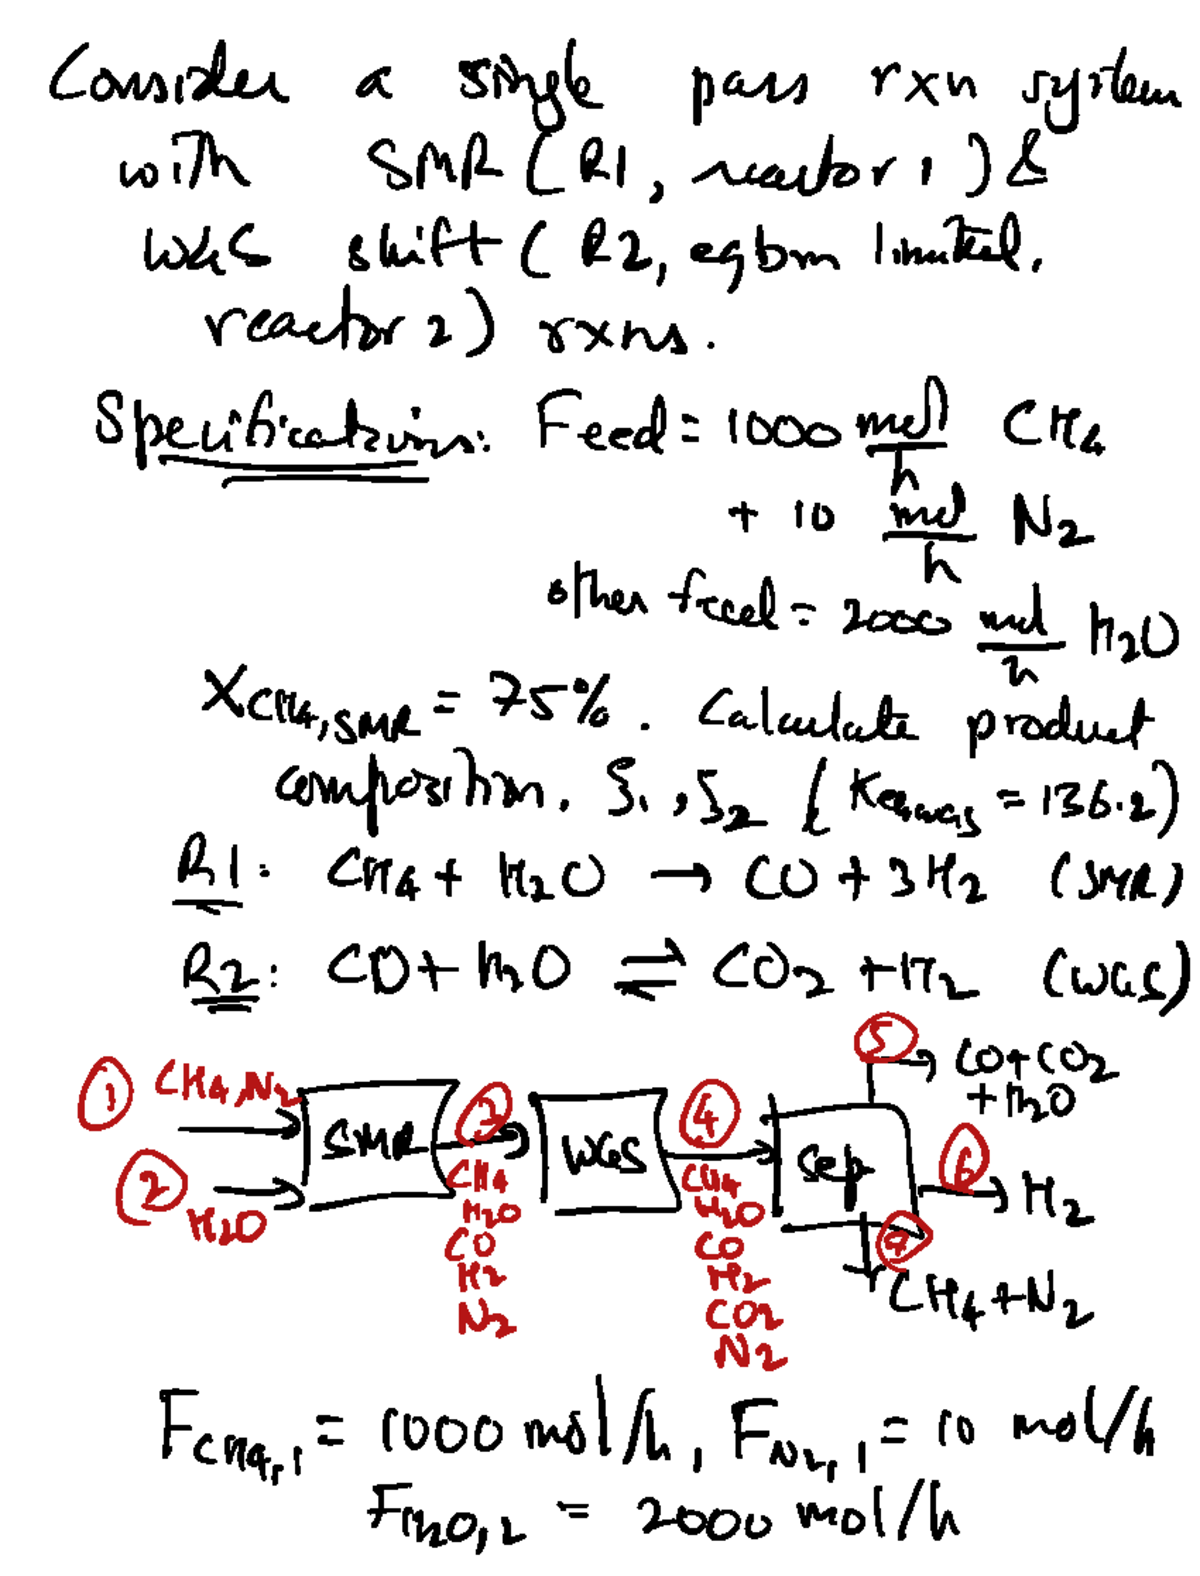 Consider a single pass rxn system
with SMR (R1, reactor 1) &
WGS shift (R2, eqbm limited,
reactor 2) rxns.
Specifications: Feed = 1000 mol/h CH4
+ 10 mol/h N2
other feed = 2000 mol/h H2O
XCH4,SMR = 75%. Calculate product
composition. ξ1, ξ2 (Keq,WGS = 136.2)
R1: CH4 + H2O → CO + 3H2 (SMR)
R2: CO + H2O ⇌ CO2 + H2 (WGS)
1 CH4, N2
2 H2O
SMR
3
CH4
H2O
CO
H2
N2
WGS
4
CH4
H2O
CO
H2
CO2
N2
Sep
5 CO + CO2
+ H2O
6 H2
CH4 + N2
FCH4,1 = 1000 mol/h, FN2,1 = 10 mol/h
FH2O,2 = 2000 mol/h